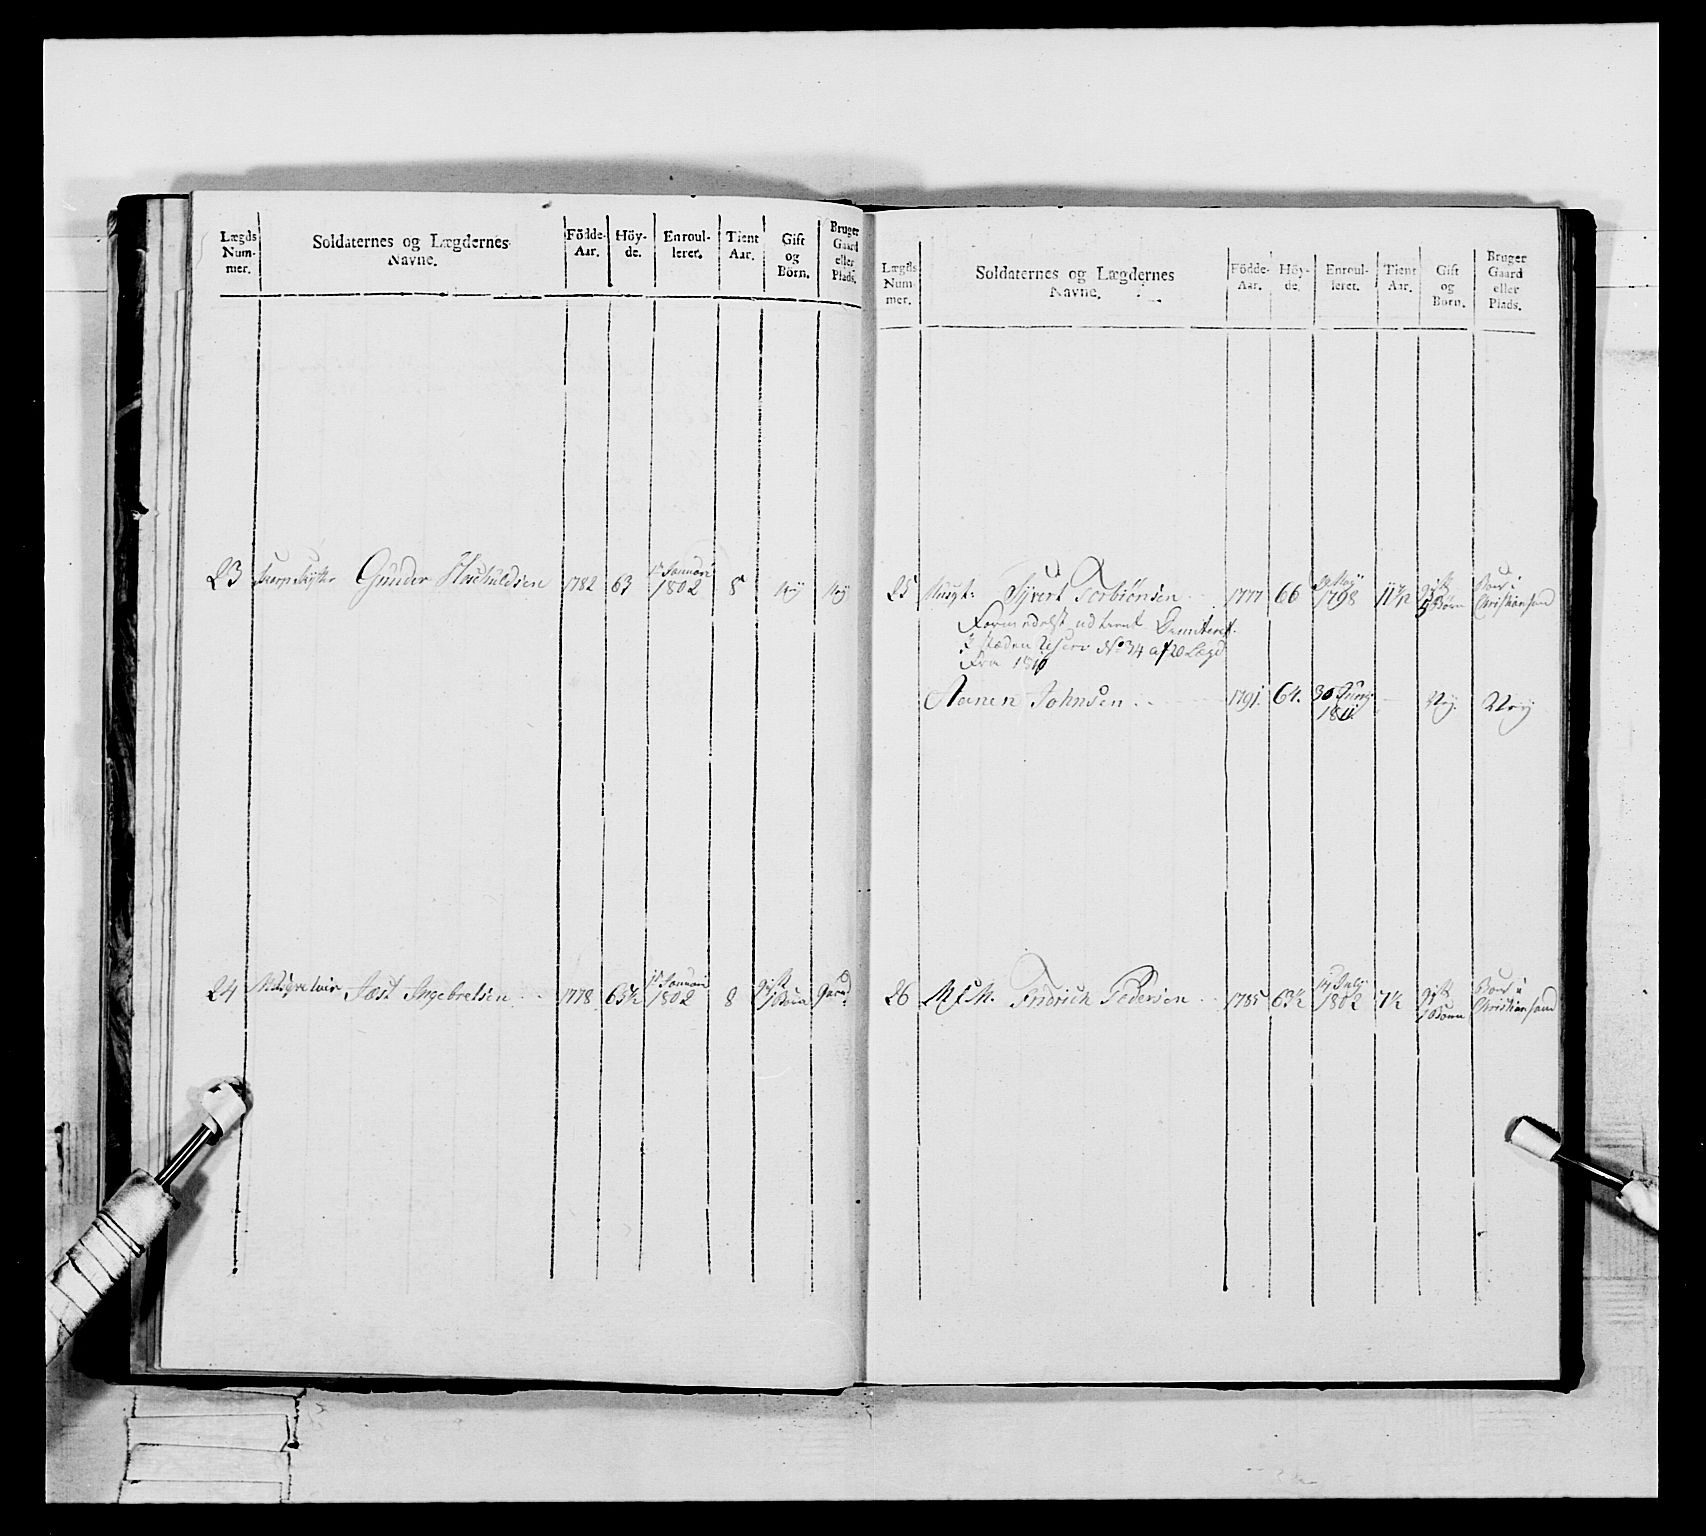 Lægds Nummer. Soldaternes og Lægdernes Navne. Födde-Aar. Höyde. Enroulleret. Tient Aar. Gift og Börn. Bruger Gaard eller Plads.
23 Skarpskytter Gunder 1782 63 1 Januari 1802 8 Ney Ney
24 Jost Ingebretsen 1778 65½ 1 Januari 1802 8 gift 1 Barn Gaard
Lægds Nummer. Soldaternes og Lægdernes Navne. Födde-Aar. Höyde. Enroulleret. Tient Aar. Gift og Börn. Bruger Gaard eller Plads.
25 Musqt: Syvert Torbiönsen 1777 66 1798 11½ gift 5 Börn Boer i Christiansand
Formedelst udtient Demiteret.
I stæden Reserv No 34 af 20 Lægd
Fra 1811
Aanen Johnsen 1791. 64. 30 Juny 1811. Ney. Ney
26 Fridrich Pedersen 1785 63½ July 1802 7½ gift 1 Barn Boer i Christiansand